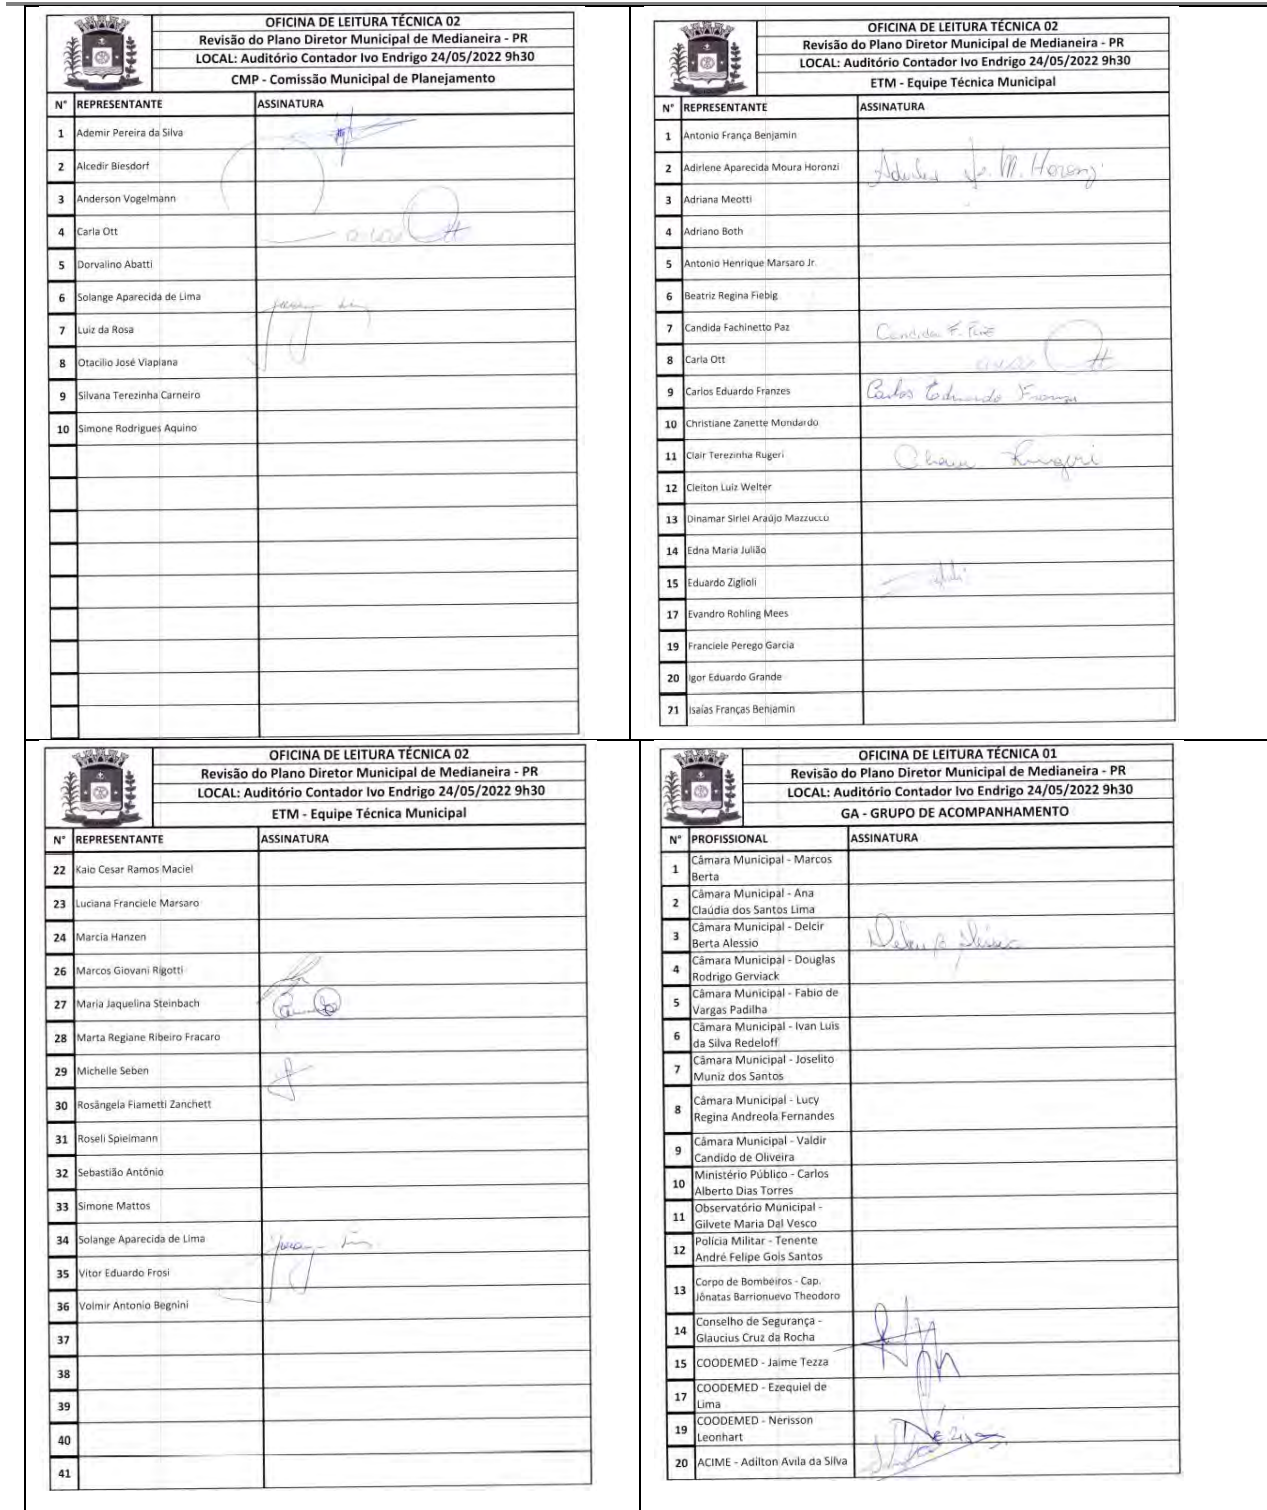 OFICINA DE LEITURA TÉCNICA 02
Revisão do Plano Diretor Municipal de Medianeira - PR
LOCAL: Auditório Contador Ivo Endrigo 24/05/2022 9h30
CMP - Comissão Municipal de Planejamento
N° REPRESENTANTE ASSINATURA
1 Ademir Pereira da Silva
2 Alcedir Biesdorf
3 Anderson Vogelmann
4 Carla Ott
5 Dorvalino Abatti
6 Solange Aparecida de Lima
7 Luiz da Rosa
8 Otacilio José Viapiana
9 Silvana Terezinha Carneiro
10 Simone Rodrigues Aquino
OFICINA DE LEITURA TÉCNICA 02
Revisão do Plano Diretor Municipal de Medianeira - PR
LOCAL: Auditório Contador Ivo Endrigo 24/05/2022 9h30
ETM - Equipe Técnica Municipal
N° REPRESENTANTE ASSINATURA
1 Antonio França Benjamin
2 Adirlene Aparecida Moura Horonzi M. Horonzi
3 Adriana Meotti
4 Adriano Both
5 Antonio Henrique Marsaro Jr.
6 Beatriz Regina Fiebig
7 Candida Fachinetto Paz Candida F. Paz
8 Carla Ott
9 Carlos Eduardo Franzes Carlos Eduardo
10 Christiane Zanette Mondardo
11 Clair Terezinha Rugeri Rugeri
12 Cleiton Luiz Welter
13 Dinamar Sirlei Araújo Mazzucco
14 Edna Maria Julião
15 Eduardo Ziglioli
17 Evandro Rohling Mees
19 Franciele Perego Garcia
20 Igor Eduardo Grande
21 Isaías Franças Benjamin
OFICINA DE LEITURA TÉCNICA 02
Revisão do Plano Diretor Municipal de Medianeira - PR
LOCAL: Auditório Contador Ivo Endrigo 24/05/2022 9h30
ETM - Equipe Técnica Municipal
N° REPRESENTANTE ASSINATURA
22 Kaio Cesar Ramos Maciel
23 Luciana Franciele Marsaro
24 Marcia Hanzen
26 Marcos Giovani Rigotti
27 Maria Jaquelina Steinbach
28 Marta Regiane Ribeiro Fracaro
29 Michelle Seben
30 Rosângela Fiametti Zanchett
31 Roseli Spielmann
32 Sebastião Antônio
33 Simone Mattos
34 Solange Aparecida de Lima
35 Vitor Eduardo Frosi
36 Volmir Antonio Begnini
37
38
39
40
41
OFICINA DE LEITURA TÉCNICA 01
Revisão do Plano Diretor Municipal de Medianeira - PR
LOCAL: Auditório Contador Ivo Endrigo 24/05/2022 9h30
GA - GRUPO DE ACOMPANHAMENTO
N° PROFISSIONAL ASSINATURA
1 Câmara Municipal - Marcos
Berta
2 Câmara Municipal - Ana
Claúdia dos Santos Lima
3 Câmara Municipal - Delcir
Berta Alessio
4 Câmara Municipal - Douglas
Rodrigo Gerviack
5 Câmara Municipal - Fabio de
Vargas Padilha
6 Câmara Municipal - Ivan Luis
da Silva Redeloff
7 Câmara Municipal - Joselito
Muniz dos Santos
8 Câmara Municipal - Lucy
Regina Andreola Fernandes
9 Câmara Municipal - Valdir
Candido de Oliveira
10 Ministério Público - Carlos
Alberto Dias Torres
11 Observatório Municipal -
Gilvete Maria Dal Vesco
12 Polícia Militar - Tenente
André Felipe Gois Santos
13 Corpo de Bombeiros - Cap.
Jônatas Barrionuevo Theodoro
14 Conselho de Segurança -
Glaucius Cruz da Rocha
15 COODEMED - Jaime Tezza
17 COODEMED - Ezequiel de
Lima
19 COODEMED - Nerisson
Leonhart
20 ACIME - Adilton Avila da Silva